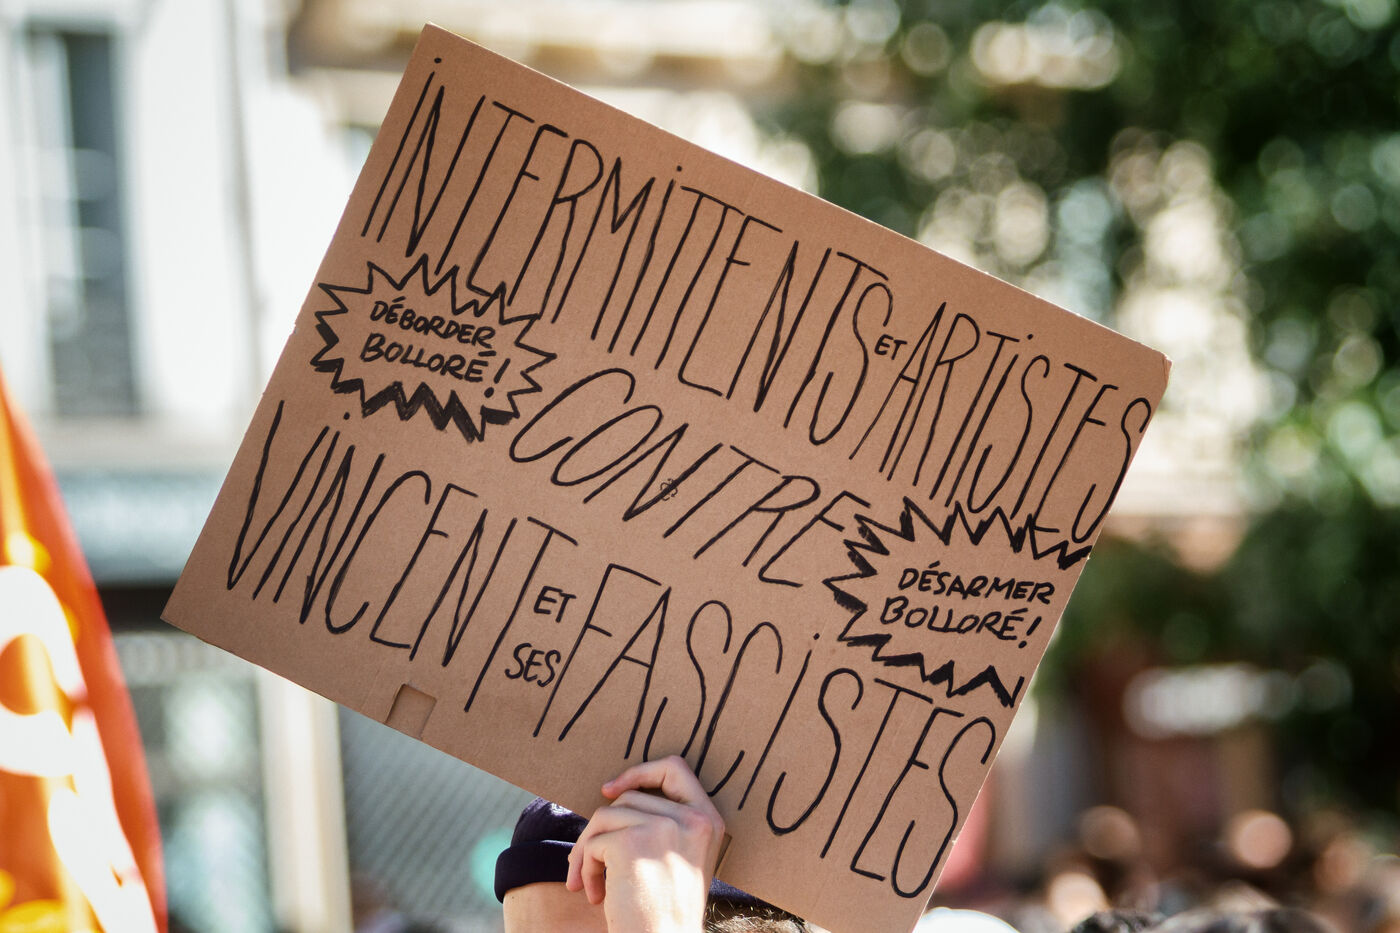 INTERMITTENTS ET ARTISTES
DÉBORDER
BOLLORÉ !
CONTRE
DÉSARMER
BOLLORÉ !
VINCENT ET SES FASCISTES